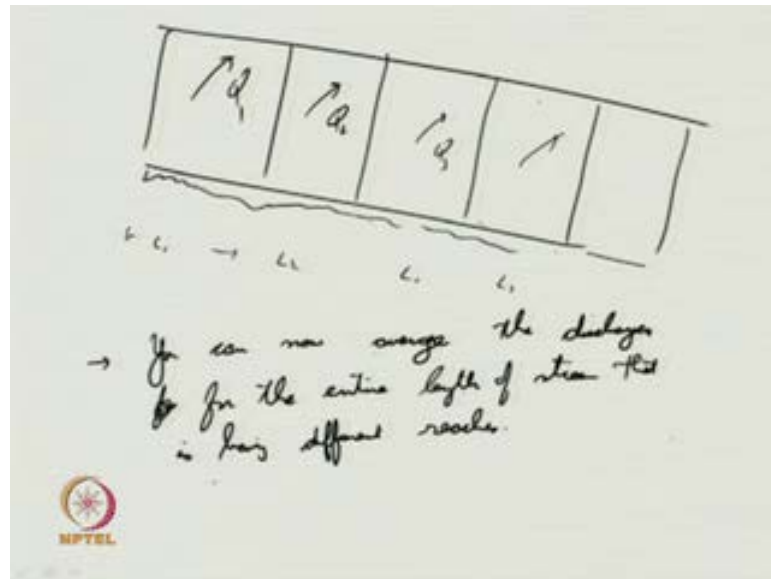 Q1 Q2 Q3
L1 → L2 L. L,
→ You can now average the discharges
for the entire length of stream that
is having different reaches.
NPTEL